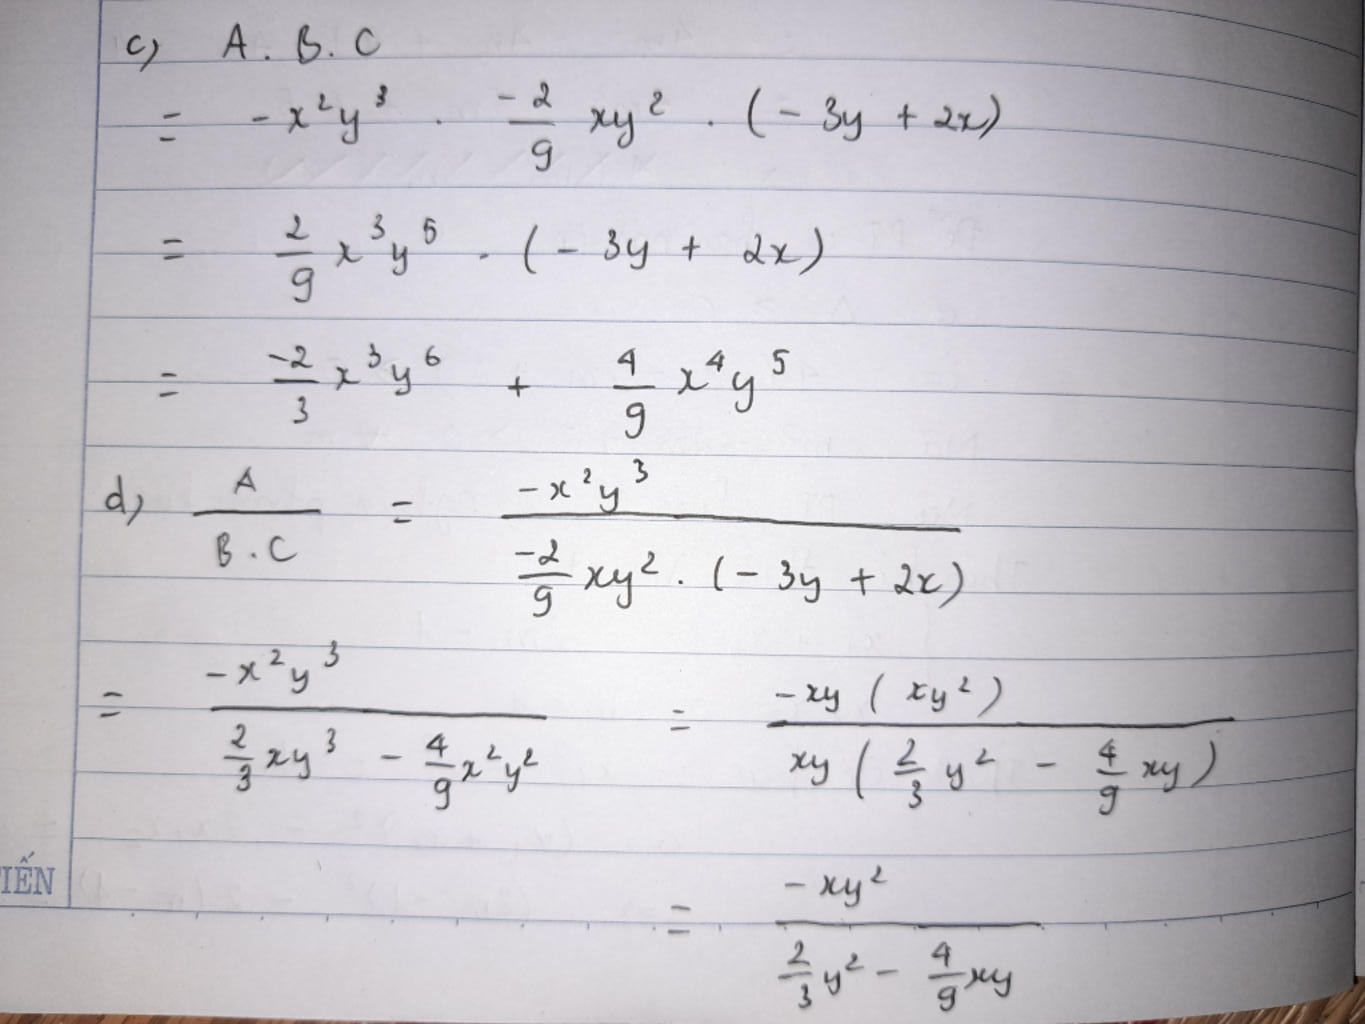 c) A . B . C
= -x²y³ . -2/9 xy² . (-3y + 2x)
= 2/9 x³y⁵ . (-3y + 2x)
= -2/3 x³y⁶ + 4/9 x⁴y⁵
d) A/(B.C) = -x²y³ / (-2/9 xy² . (-3y + 2x))
= -x²y³ / (2/3 xy³ - 4/9 x²y²) = -xy (xy²) / (xy (2/3 y² - 4/9 xy))
= -xy² / (2/3 y² - 4/9 xy)
IẾN